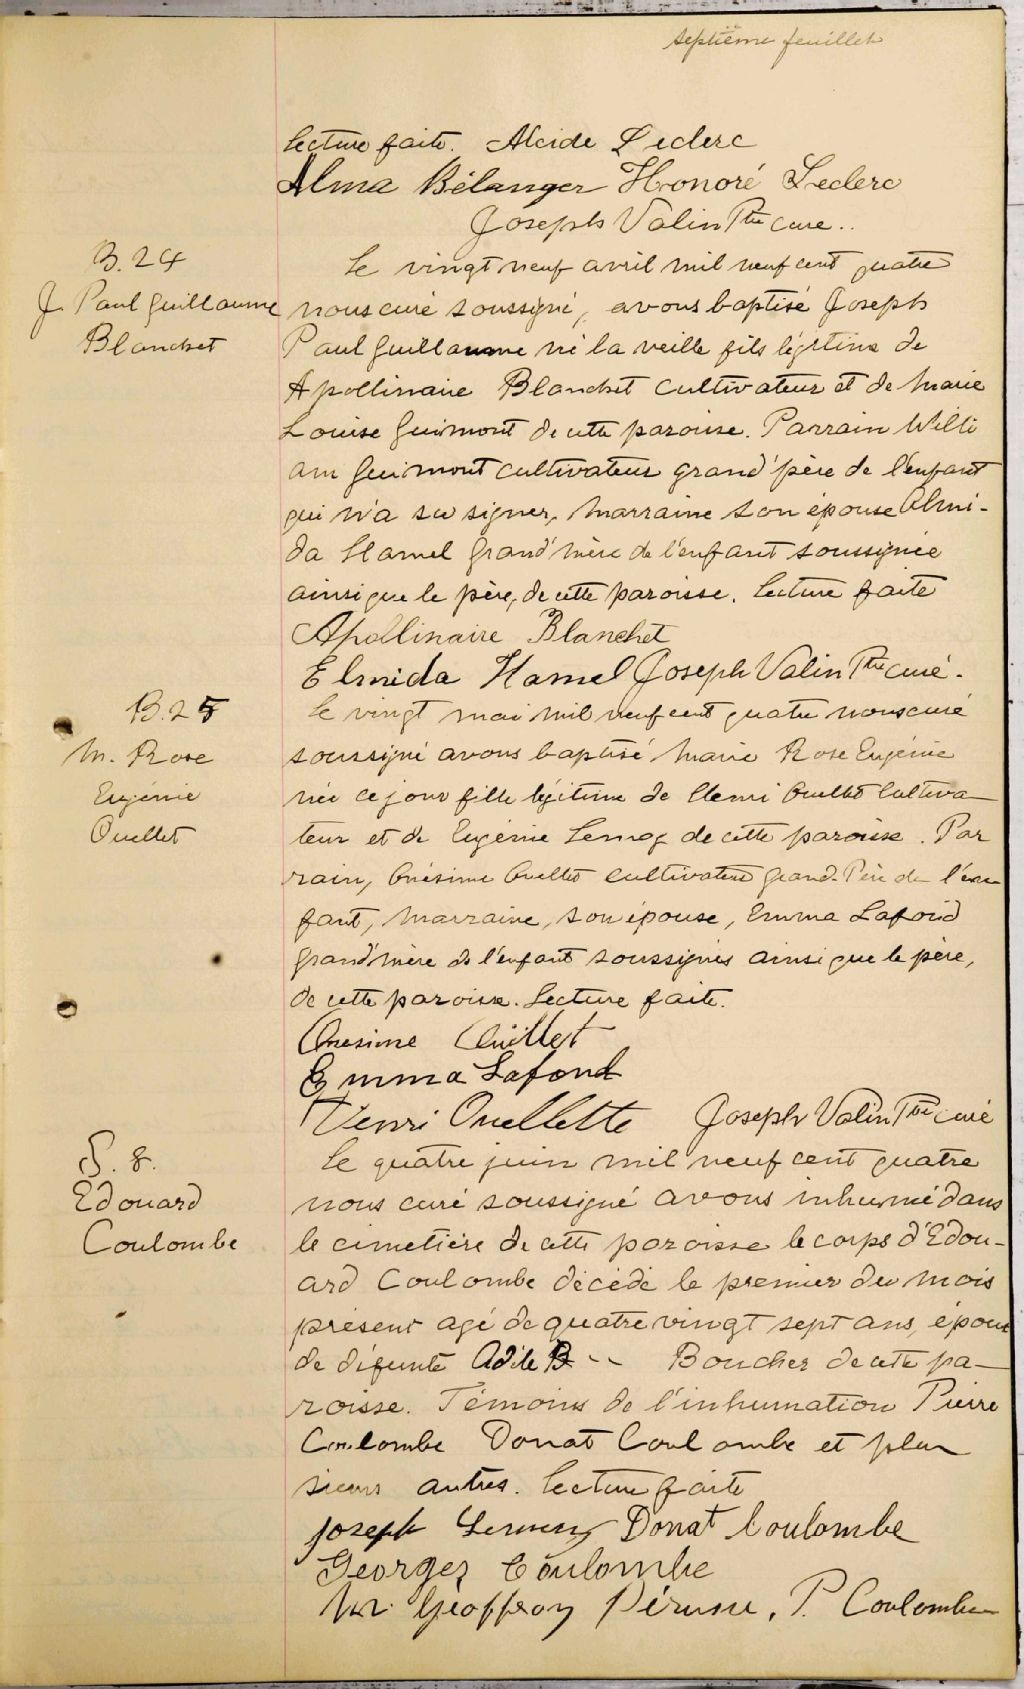 septième feuillet
lecture faite. Alcide Leclerc
Alma Bélanger Honoré Leclerc
Joseph Valin Ptre cure..
B. 24
J. Paul Guillaume
Blanchet
Le vingt neuf avril mil neuf cent quatre
nous curé soussigné, avons baptisé Joseph
Paul Guillaume né la veille fils légitime de
Apollinaire Blanchet cultivateur et de Marie
Louise Guimont de cette paroisse. Parrain Willi
am Guimont cultivateur grand'père de l'enfant
qui n'a su signer, Marraine son épouse Almi-
da Hamel grand'mère de l'enfant soussignée
ainsi que le père, de cette paroisse. Lecture faite
Apollinaire Blanchet
Elmida Hamel Joseph Valin Ptre curé.
B. 25
M. Rose
Eugénie
Ouellet
Le vingt mai mil neuf cent quatre nous curé
soussigné avons baptisé Marie Rose Eugénie
née ce jour fille légitime de Henri Ouellet cultiva-
teur et de Eugénie de cette paroisse. Par
rain, Onésime Ouellet cultivateur grand-Père de l'en
fant, Marraine, son épouse, Emma Lafond
grand'mère de l'enfant soussignés ainsi que le père,
de cette paroisse. Lecture faite.
Onesime Ouillet
Emma Lafond
Henri Ouellette Joseph Valin Ptre curé
S. 8.
Edouard
Coulombe
Le quatre juin mil neuf cent quatre
nous curé soussigné avons inhumé dans
le cimetière de cette paroisse le corps d'Edou-
ard Coulombe décédé le premier du mois
présent agé de quatre vingt sept ans, époux
de défunte Adile B-- Boucher de cette pa-
roisse. Témoins de l'inhumation Pierre
Coulombe Donat Coulombe et plu
sieurs autres. Lecture faite
Joseph Donat Coulombe
Georges Coulombe
Geoffroy Pérusse, P. Coulombe